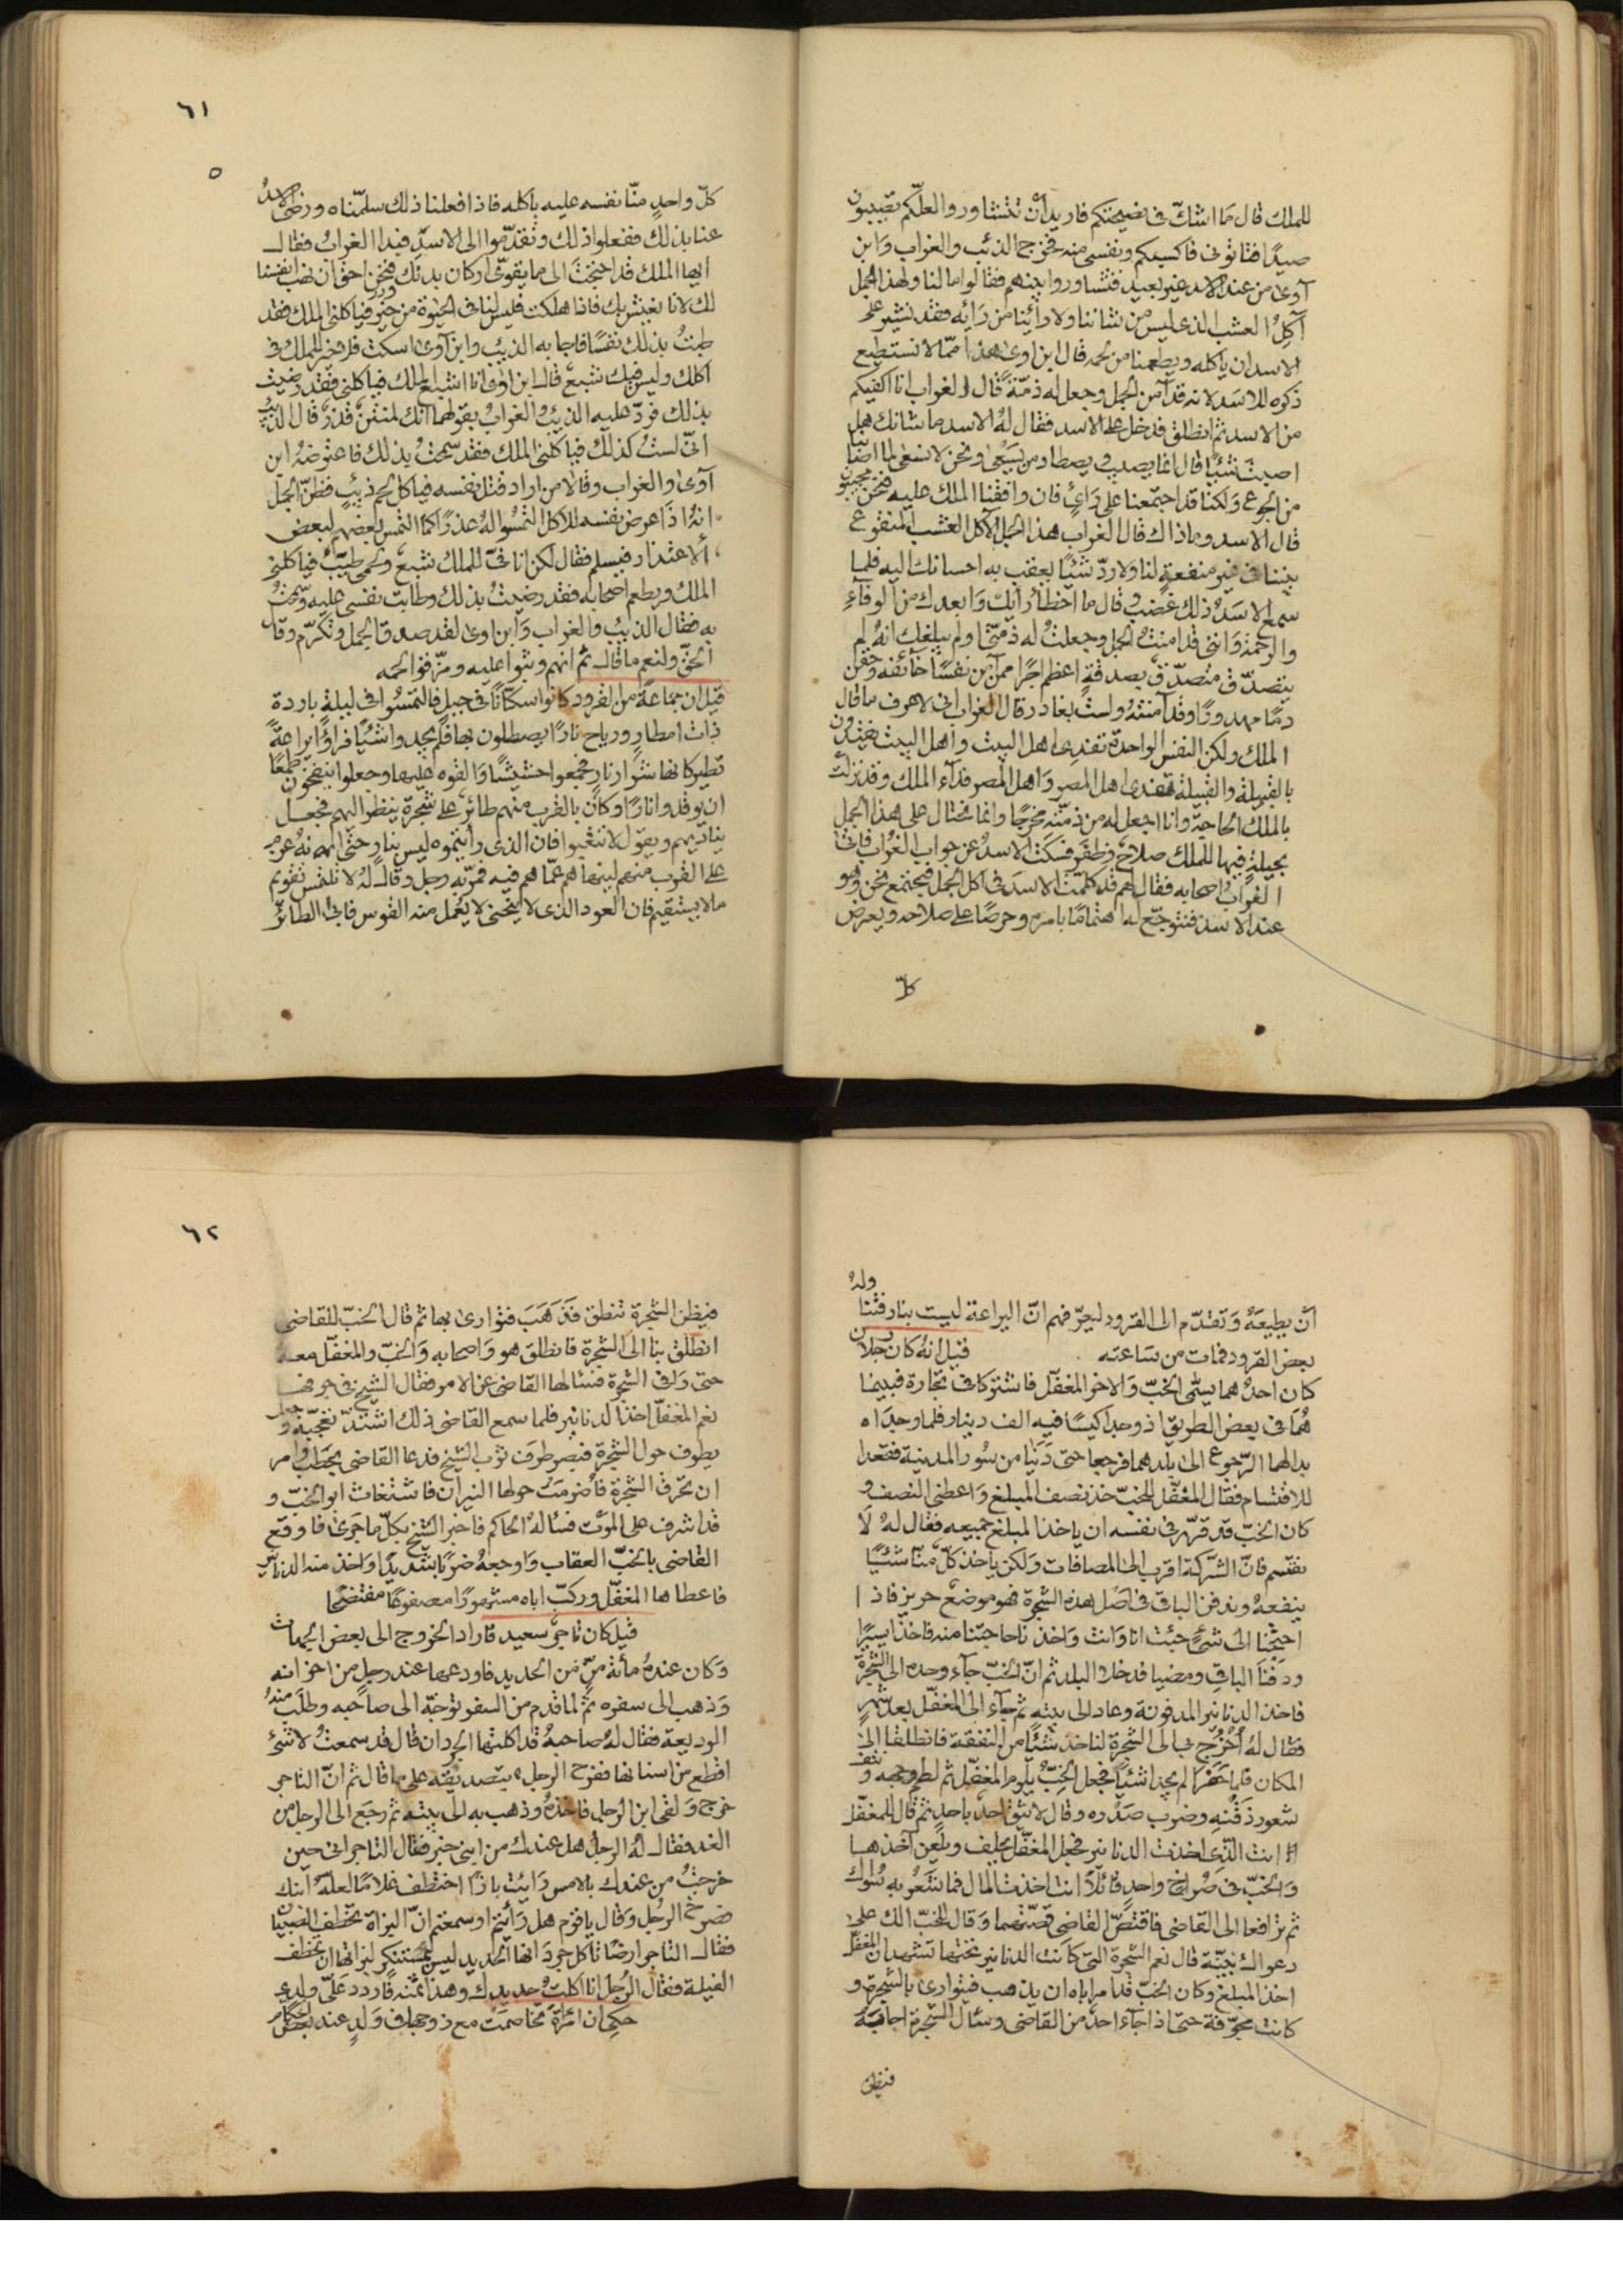 للملك قال ما اشك في نصيحتكم فاريد أن تتشاوروا لعلّكم تصيبون
صيدًا فتاتوني فاكسبكم ونفسي منه فخرج الذئب والغراب وابن
آوى من عند الاسد غير بعيد فتشاوروا بينهم فقالوا ما لنا ولهذا الجمل
آكل العشب الذي ليس من شاننا ولا رائينا من رايه فقد نشير على
الاسد ان ياكله ويطعمنا من لحمه قال ابن اوى هذا ممّا لا نستطيع
ذكره للاسد لانه قد آمن الجمل وجعل له ذمّة قال الغراب انا اكفيكم
من الاسد ثم انطلق فدخل على الاسد فقال له الاسد ما شانك هل
اصبت شيئًا قال انما يصيب ويصطاد من يسعى ونحن لا نسعى لما اصابنا
من الجوع ولكنّا قد اجتمعنا على رأي فان وافقنا الملك عليه فنحن مجيبون
قال الاسد وما ذاك قال الغراب هذا الجمل الآكل العشب المتفوع
بيننا في غير منفعة لنا ولا ردّ شيئًا يعقب به احسانك اليه فلما
سمع الاسد ذلك غضب وقال ما اخطأ رأيك وابعدك من الوفاء
والرحمة وانني قد امنت الجمل وجعلت له ذمّتي اولم يبلغك انه لم
يتصدّق متصدّق بصدقة اعظم اجرًا ممن آمن نفسًا خائفة وحقن
دمًا مهدورًا وقد آمنته ولست بغادر قال الغراب اني لاعرف ما قال
الملك ولكن النفس الواحدة تفتدى اهل البيت واهل البيت يفتدون
بالقبيلة والقبيلة تفتدى اهل المصر واهل المصر فدآء الملك وقد نزلت
بالملك الحاجة وانا اجعل له من ذمّته مخرجًا وانما نحتال على هذا الجمل
بحيلة فيها للملك صلاح وظفر فسكت الاسد عن جواب الغراب فاتى
الغراب اصحابه فقال لهم قد كلّمت الاسد في اكل الجمل فيجتمع نحن وهو
عند الاسد فنتوجّع له اهتمامًا بامره وحرصًا على صلاحه ويعرض
كلّ
٦١
كلّ واحد منّا نفسه عليه ياكله فاذا فعلنا ذلك سلمناه ورضى الاسد
عنا بذلك ففعلوا ذلك وتقدّموا الى الاسد فبدا الغراب فقال
ايها الملك قد احتجت الى ما يقوّى اركان بدنك فنحن احق ان نهب انفسنا
لك لانا نعيش بك فاذا هلكت فليس لنا في الحيوة من خير فياكلني الملك فقد
طبت بذلك نفسًا فاجابه الذئب وابن آوى اسكت فلا خير للملك في
اكلك وليس فيك شبع قال ابن اوى فانا اشبع الملك فياكلني فقد رضيت
بذلك فردّ عليه الذيب والغراب بقولهما انك لمنتن قذر قال الذيب
انّي لست كذلك فياكلني الملك فقد سمحت بذلك فاعترضه ابن
آوى والغراب وقالا من اراد قتل نفسه فياكل لحم ذيب فظنّ الجمل
انه اذا عرض نفسه للاكل التمسوا له عذرًا كما التمس بعضهم لبعض
الاعتذار فيسلم فقال لكن انا فيّ للملك شبع ولحمي طيّب فياكلني
الملك ويطعم اصحابه فقد رضيت بذلك وطابت نفسي عليه وسمحت
به فقال الذيب والغراب وابن اوى لقد صدق الجمل وتكرّم وقال
الحق ولنعم ما قال ثم انهم وثبوا عليه ومزّقوا لحمه
قيل ان جماعة من القرود كانوا سكّانًا في جبل فالتمسوا في ليلة باردة
ذات امطار ورياح نارًا يصطلون بها فلم يجدوا شيئًا فراؤا يراعةً
تطير كانها شرار نار فجمعوا حشيشًا والقوه عليها وجعلوا ينفخون طمعًا
ان يوقدوا نارًا وكان بالقرب منهم طائر على شجرة ينظر اليهم فجعل
يناديهم ويقول لا تتعبوا فان الذي رأيتموه ليس بنار حتى انه عزم
على القرب منهم لينهاهم عمّا هم فيه فمرّ به رجل وقال له لا تلتمس تقويم
ما لا يستقيم فان العود الذي لا ينحني لا يُعمل منه القوس فابى الطائر
أن يطيعه وتقدّم الى القرود ليعرّفهم انّ اليراعة ليست بنار فتناوله
بعض القرود فمات من ساعته قيل انه كان رجلان
كان احدهما يسمّى الخبّ والاخر المغفّل فاشتركا في تجارة فبينما
هما في بعض الطريق اذ وجدا كيسًا فيه الف دينار فلما وجداه
بدا لهما الرجوع الى بلدهما فرجعا حتى دنيا من سور المدينة فقعدا
للاقتسام فقال المغفّل للخبّ خذ نصف المبلغ واعطني النصف و
كان الخبّ قد قرّر في نفسه ان ياخذ المبلغ جميعه فقال له لا
نقتسم فانّ الشركة اقرب الى المصافات ولكن ياخذ كلّ منّا شيئًا
ينفعه وندفن الباقي في اصل هذه الشجرة فهو موضع حريز فاذا
احتجنا الى شئ جئت انا وانت واخذنا حاجتنا منه فاخذا يسيرًا
ودفنا الباقي ومضيا فدخلا البلد ثم انّ الخبّ جآء وحده الى الشجرة
فاخذ الدنانير المدفونة وعاد الى بيته ثم جآء الى المغفّل بعد شهر
فقال له اخرج بي الى الشجرة لناخذ شيئًا من النفقة فانطلقا الى
المكان فلما حفرا لم يجدا شيئًا فجعل الخبّ يلوم المغفّل ثم لطم وجهه ونتف
شعور ذقنه وضرب صدره وقال لا يثق احد باحد ثم قال للمغفّل
انت الذي اخذت الدنانير فجعل المغفّل يحلف ويلعن آخذها
والخبّ في صراخ واحد قائلًا انت اخذت المال فما شعر به سواك
ثم ترافعا الى القاضي فاقتصّ القاضي قصّتهما وقال للخبّ الك على
دعواك بيّنة قال نعم الشجرة التي كانت الدنانير تحتها تشهد ان المغفّل
اخذ المبلغ وكان الخبّ قد امر اباه ان يذهب فيتوارى بالشجرة و
كانت مجوّفة حتى اذا جآء احد من القاضي وسئال الشجرة اجابه
فيظن
٦٢
فيظن الشجرة تنطق فذهب فتوارى بها ثم قال الخبّ للقاضي
انطلق بنا الى الشجرة فانطلق هو واصحابه والخبّ والمغفّل معه
حتى وافى الشجرة فسئالها القاضي عن الامر فقال الشيخ في جوفها
نعم المغفّل اخذ الدنانير فلما سمع القاضي ذلك اشتدّ تعجّبه وجعل
يطوف حول الشجرة فبصر طرف ثوب الشيخ فدعا القاضي بحطب وامر
ان تحرق الشجرة فاضرمت حولها النيران فاستغاث ابو الخبّ و
قد اشرف على الموت فسئاله الحاكم فاخبر الشيخ بكلّ ما جرى فاوقع
القاضي بالخبّ العقاب واوجعه ضربًا شديدًا واخذ منه الدنانير
فاعطاها المغفّل وركب اباه مشهورًا مصفوعًا مفتضحًا
قيل كان تاجر سعيد فاراد الخروج الى بعض الجهات
وكان عنده مأنة منّ من الحديد فاودعها عند رجل من اخوانه
وذهب الى سفره ثم لما قدم من السفر توجّه الى صاحبه وطلب منه
الوديعة فقال له صاحبه قد اكلتها الجرذان قال قد سمعت لا شئ
اقطع من اسنانها ففرح الرجل بتصديقه على ما قال ثم انّ التاجر
خرج ولقى ابن الرجل فاخذه وذهب به الى بيته ثم رجع الى الرجل من
الغد فقال له الرجل هل عندك من ابني خبر فقال التاجر اني حين
خرجت من عندك بالامس رايت بازًا اختطف غلامًا لعله ابنك
فصرخ الرجل وقال يا قوم هل رأيتم او سمعتم انّ البزاة تخطف الصبيان
فقال التاجر ارضًا تاكل جرذانها الحديد ليس بمستنكر لبزاتها ان تخطف
الفيلة فقال الرجل انا اكلت حديدك وهذا ثمنه فاردد عليّ ولدي
حكي ان امرأة تخاصمت مع زوجها في ولد عند بعض الحكام